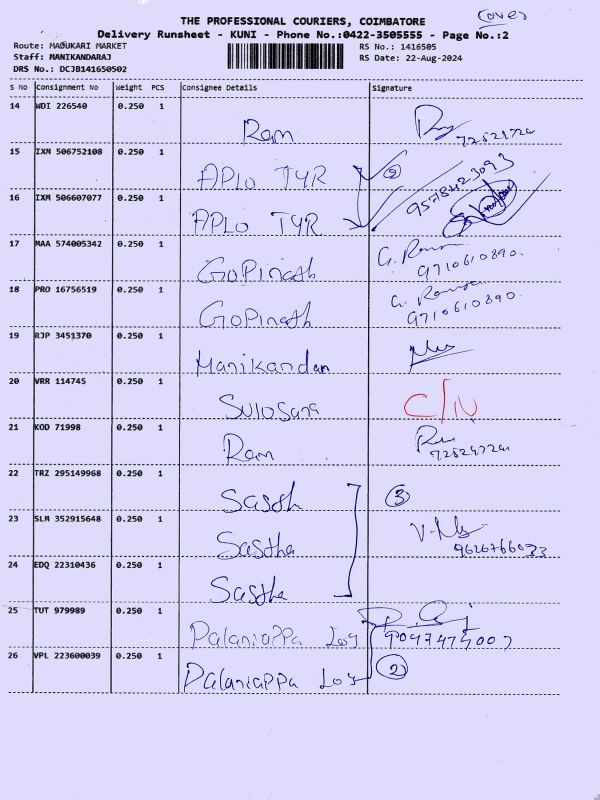 Cover
THE PROFESSIONAL COURIERS, COIMBATORE
Delivery Runsheet - KUNI - Phone No.:0422-3505555 - Page No.:2
Route: MADUKARI MARKET
RS No.: 1416505
Staff: MANIKANDARAJ
RS Date: 22-Aug-2024
DRS No.: DCJB141650502
S No Consignment No Weight PCS Consignee Details Signature
14 WDI 226540 0.250 1 Ram
15 IXM 506752108 0.250 1 APLO TYR 2
9578423093
16 IXM 506607077 0.250 1 APLO TYR
17 MAA 574005342 0.250 1 GoPinath G.
9710610890.
18 PRO 16756519 0.250 1 GoPinath G.
9710610890.
19 RJP 3451370 0.250 1 Manikandan
20 VRR 114745 0.250 1 Sulosana C/N
21 KOD 71998 0.250 1 Ram
22 TRZ 295149968 0.250 1 Sasth 3
23 SLM 352915648 0.250 1 Sastha
24 EDQ 22310436 0.250 1 Sastha
25 TUT 979989 0.250 1 Palaniappa Log
26 VPL 223600039 0.250 1 Palaniappa Log 2